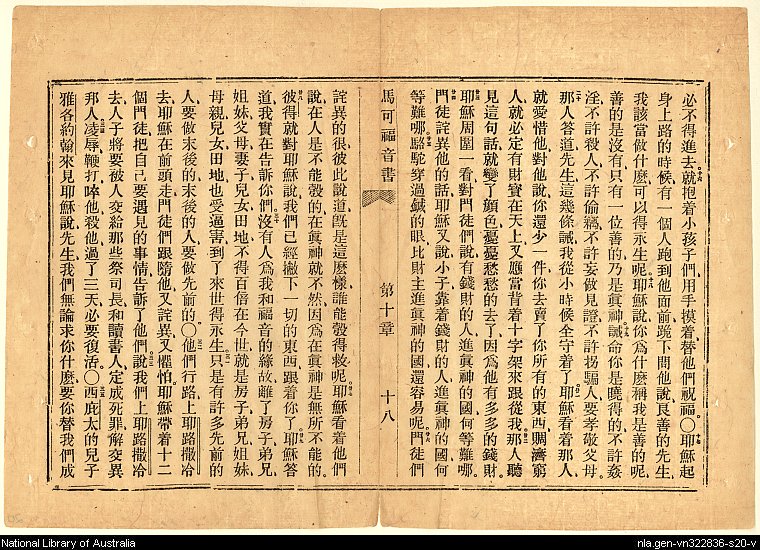 必不得進去就抱着小孩子們用手摸着替他們祝福○耶穌起
身上路的時候有一個人跑到他面前跪下問他說良善的先生
我該當做什麼可以得永生呢耶穌說你爲什麼稱我是善的呢
善的是沒有只有一位善的乃是眞神誡命你是曉得的不許姦
淫不許殺人不許偷竊不許妄做見證不許拐騙人要孝敬父母
那人答道先生這幾條誡我從小時候全守着了耶穌看着那人
就愛惜他對他說你還少一件你去賣了你所有的東西賙濟窮
人就必定有財寳在天上又應當背着十字架來跟從我那人聽
見這句話就變了顏色憂憂愁愁的去了因爲他有多多的錢財
耶穌周圍一看對門徒們說有錢財的人進眞神的國何等難哪
門徒詫異他的話耶穌又說小子靠着錢財的人進眞神的國何
等難哪駱駝穿過鍼的眼比財主進眞神的國還容易呢門徒們
馬可福音書 第十章 十八
詫異的很彼此說道旣是這麼樣誰能彀得救呢耶穌看着他們
說在人是不能彀的在眞神就不然因爲在眞神是無所不能的
彼得就對耶穌說我們已經撇下一切的東西跟着你了耶穌答
道我實在告訴你們沒有人爲我和福音的緣故離了房子弟兄
姐妹父母妻子兒女田地不得百倍在今世就是房子弟兄姐妹
母親兒女田地也受逼害到了來世得永生只是有許多先前的
人要做末後的末後的人要做先前的○他們行路上耶路撒冷
去耶穌在前頭走門徒們跟隨他又詫異又懼怕耶穌帶着十二
個門徒把自己要遇見的事情告訴了他們說我們上耶路撒冷
去人子將要被人交給那些祭司長和讀書人定成死罪解交異
邦人凌辱鞭打啐他殺他過了三天必要復活○西庇太的兒子
雅各約翰來見耶穌說先生我們無論求你什麼要你替我們成
National Library of Australia
nla.gen-vn322836-s20-v